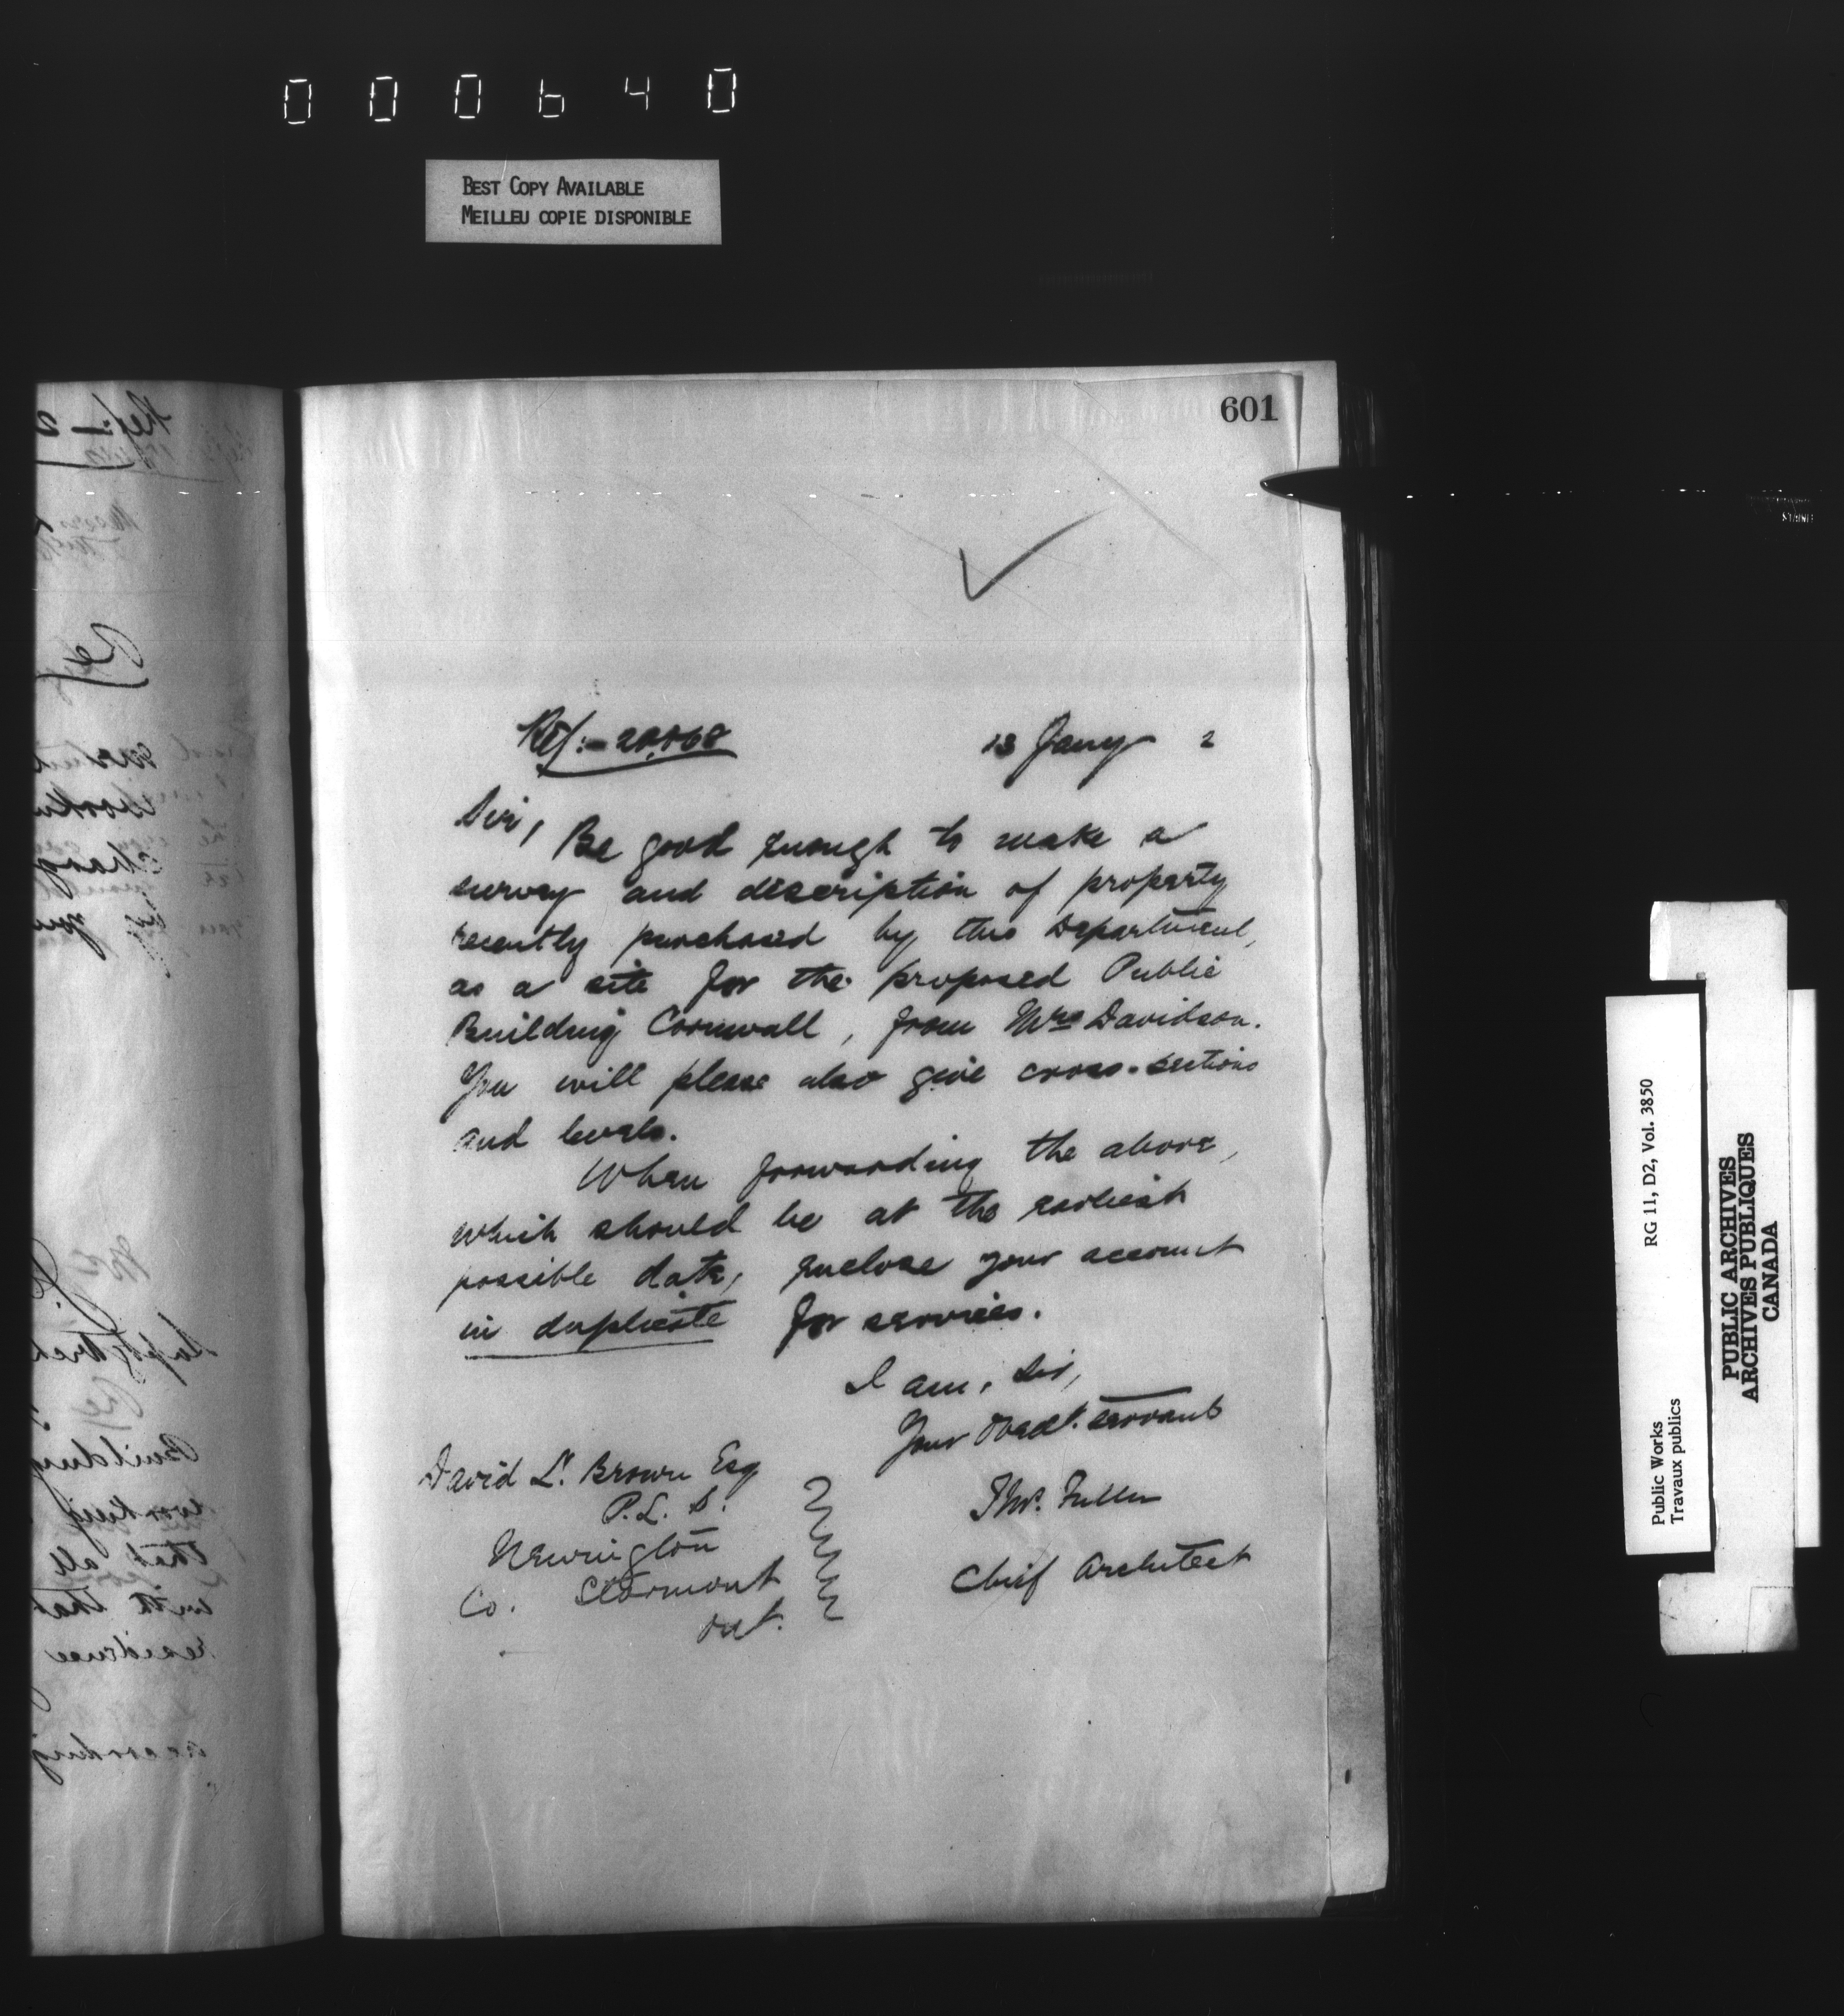 000640
BEST COPY AVAILABLE
MEILLEU COPIE DISPONIBLE
601
Ref:- 20,068
13 Jany 2
Sir,
Be good enough to make a
survey and description of property
recently purchased by this Department,
as a site for the proposed Public
Building Cornwall, from Mrs Davidson.
You will please also give cross-sections
and levels.
When forwarding the above,
which should be at the earliest
possible date, enclose your account
in duplicate for services.
I am, Sir,
Your obedt. servant
Thos. Fuller
Chief Architect
David L. Brown Esq
P.L.S.
Newington
Co. Stormont
Ont.
RG 11, D2, Vol. 3850
Public Works
Travaux publics
PUBLIC ARCHIVES
ARCHIVES PUBLIQUES
CANADA